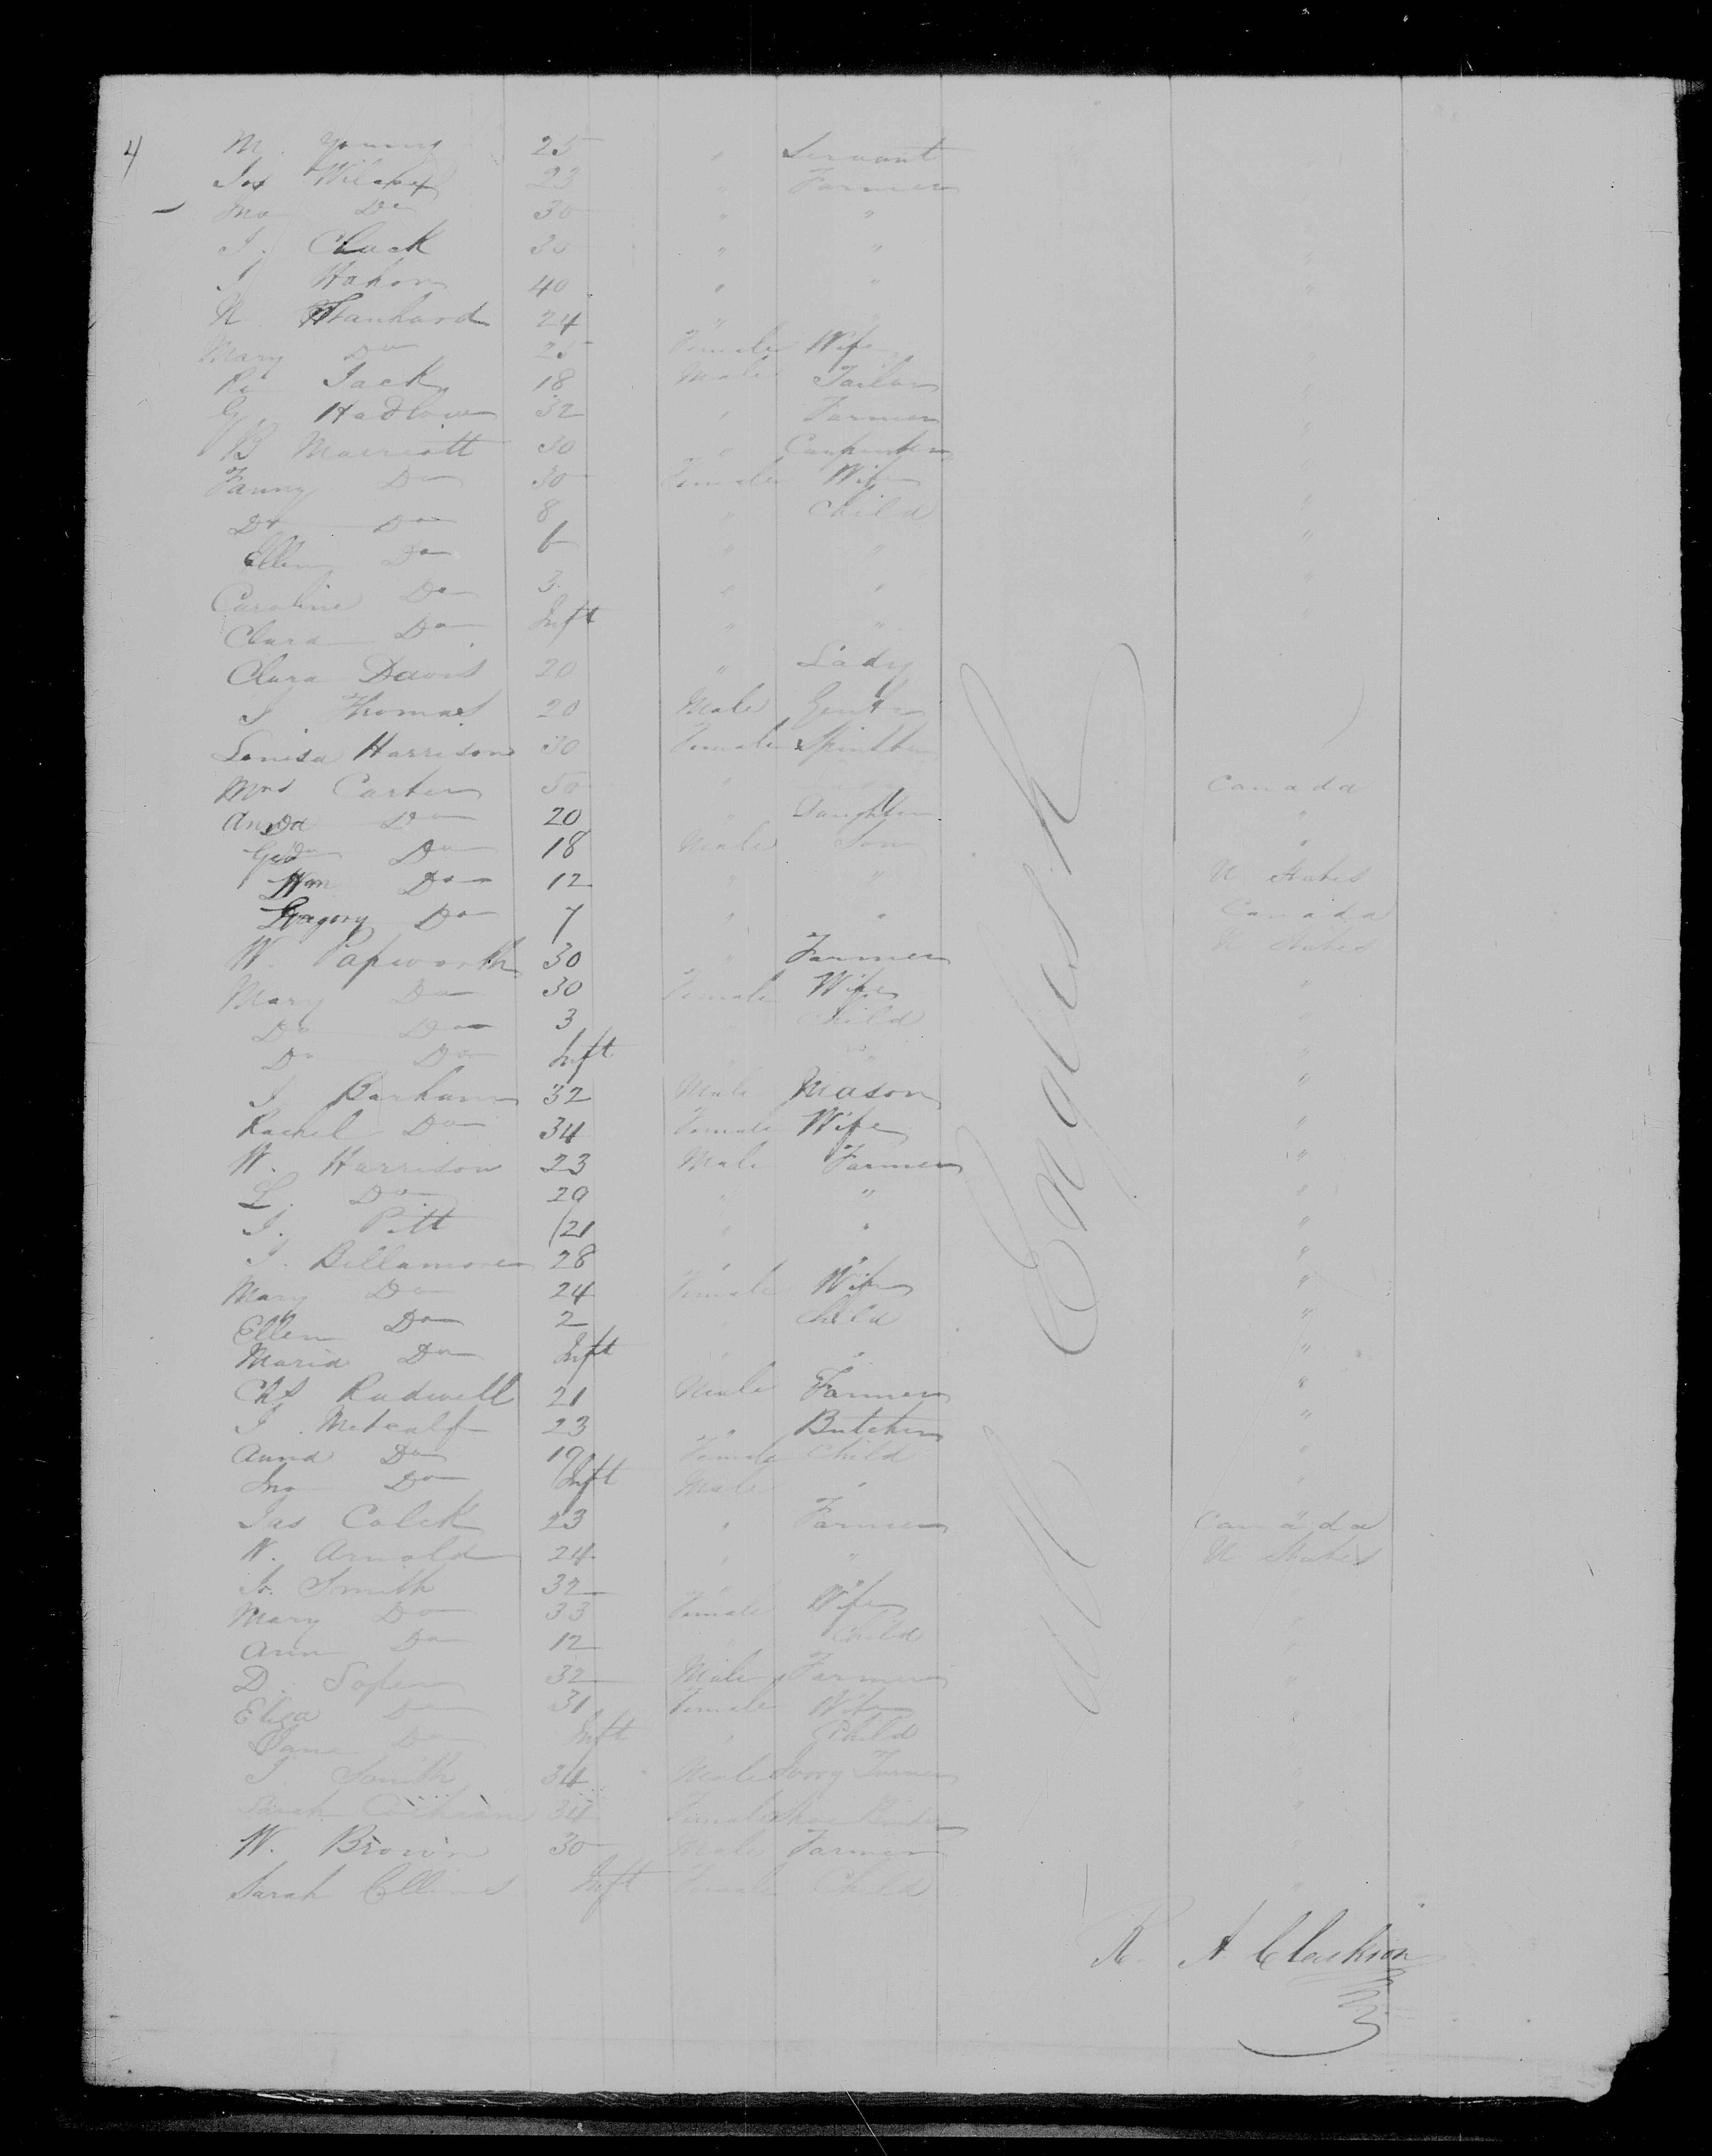 4
M. Young 25 " Servant
Jas 23 " Farmer
Jno Do 30 " "
J. Cluck 30 " "
J 40 " "
24 " "
Mary Do 25 Female Wife
Jack 18 Male Tailor
G. Hadlow 32 " Farmer
B Marriott 30 " Carpenter
Fanny Do 30 Female Wife
Do Do 8 " Child
Ellen Do 6 " "
Caroline Do 3 " "
Clara Do Inft " "
Clara Davis 20 " Lady
J Thomas 20 Male
Louisa Harrison 30 Female Spinster
Mrs Carter 50 " Canada
Do 20 " Daughter "
Geo Do 18 Male Son "
Wm Do 12 " " U States
Gregory Do 7 " " Canada
W. Papworth 30 " Farmer U States
Mary Do 30 Female Wife "
Do Do 3 Child "
Do Do Inft " "
J. Barham 32 Male Mason "
Rachel Do 34 Female Wife "
W. Harrison 23 Male Farmer "
L. Do 29 " " "
J. Pitt 21 " " "
J. Billamore 28 " " "
Mary Do 24 Female Wife "
Ellen Do 2 " Child "
Maria Do Inft " " "
Chs Radwell 21 Male Farmer "
J. Metcalf 23 " Butcher "
Anna Do 19 Female Child "
Jno Do Inft Male " "
Jas Colck 23 " Farmer Canada
W. Arnold 24 " " U States
Jo. Smith 32 " "
Mary Do 33 Female Wife
Ann Do 12 " Child "
D. Soper 32 Male Farmer "
Eliza Do 31 Female Wife
Jane Do Inft " Child
J. Smith 34 Male Ivory Turner
Sarah 34 Female Shoe Binder "
W. Brown 30 Male Farmer "
Sarah Inft Female Child "
All English
R. A. Clarkson